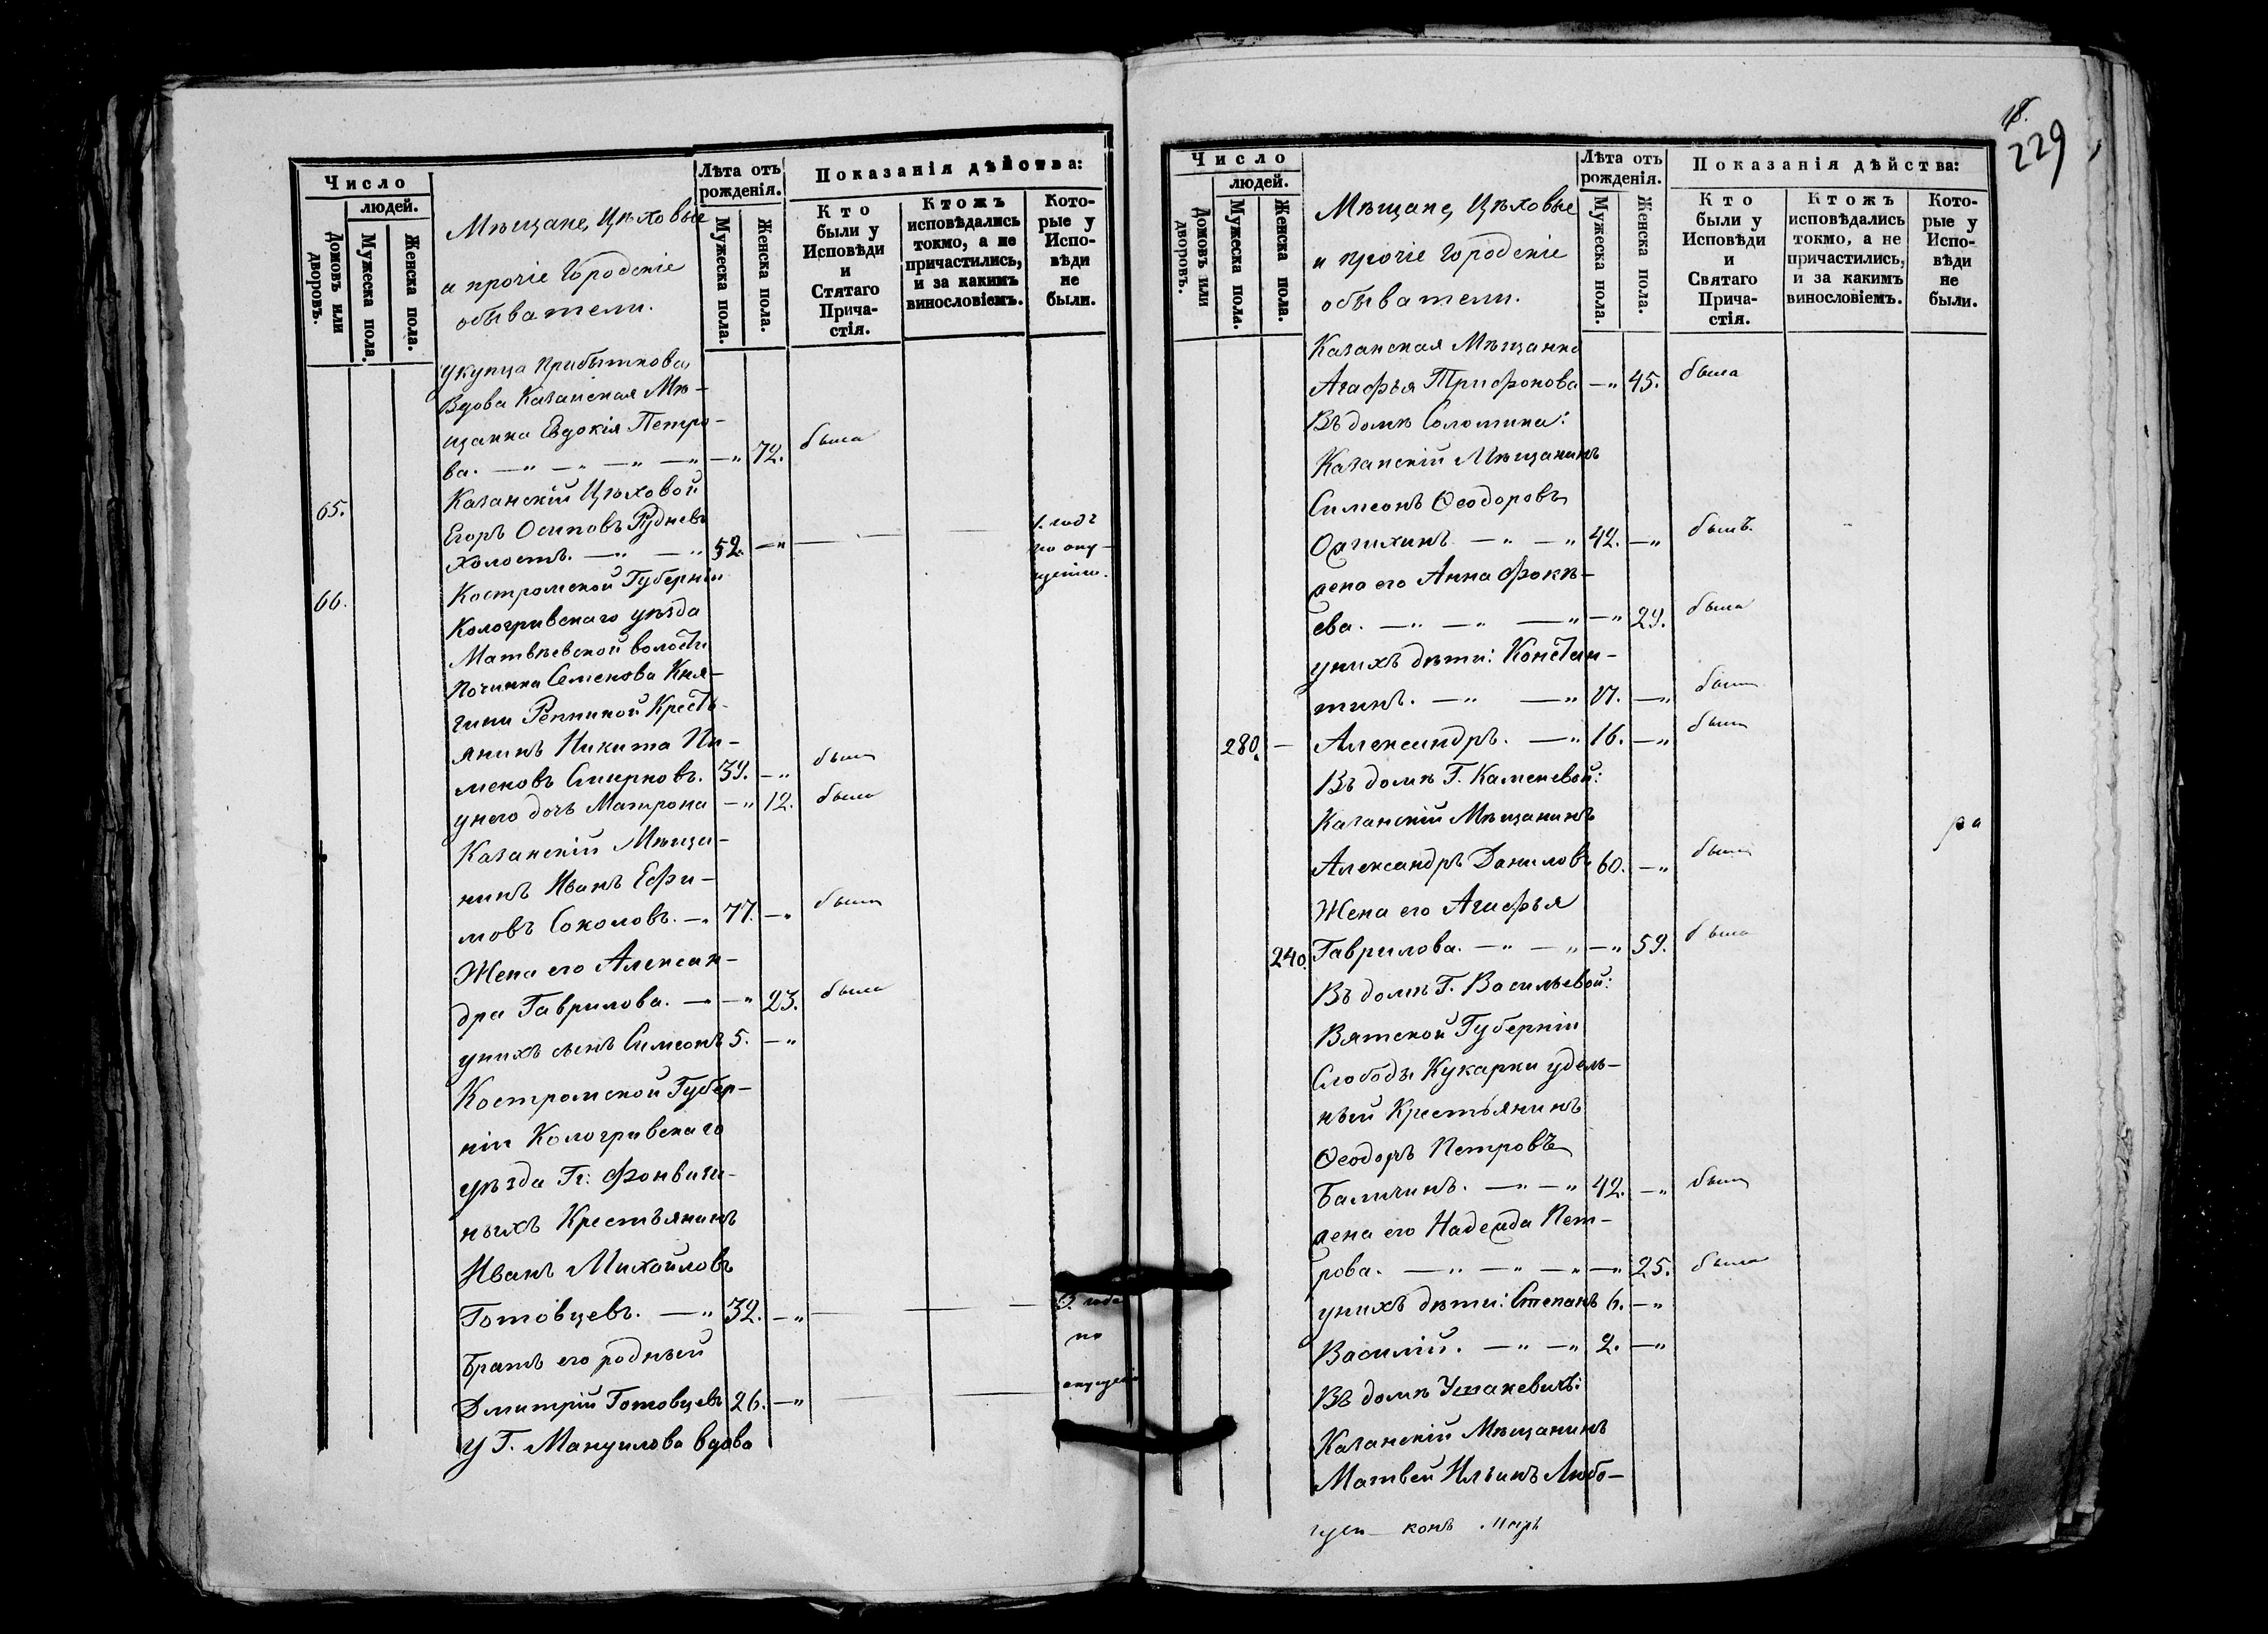 Число
людей.
Домовъ или дворовъ.
Мужеска пола.
Женска пола.
Мѣщане, Цѣховые
и прочіе Городскіе
обыватели.
Лѣта отъ рожденія.
Мужеска пола.
Женска пола.
Показанія дѣйства:
Кто были у Исповѣди и Стятаго Прича- стія.
Ктожъ исповѣдались токмо, а не причастились, и за какимъ винословіемъ.
Кото- рые у Испо- вѣди не были.
у купца Прибыткова,
Вдова Казанская Мѣ-
щанка Евдокія Петро-
ва. — „ — „ — „ — „ — „ 72. была
65. Казанскій Цѣховой
Егоръ Осиповъ Рудневъ 1. годъ
холостъ. — „ — „ 52. — „ — — по опу-
щенію.
66. Костромской Губерніи
Кологривскаго уѣзда
Матвѣевской волости
починка Семенова Кня-
гини Репниной Кресть-
янинъ Никита Пи-
меновъ Смирновъ. 39. — „ былъ
у него дочь Матрона — „ 12. была
Казанскій Мѣща-
нинъ Иванъ Ефи-
мовъ Соколовъ. — „ 77. — „ былъ
Жена его Алексан-
дра Гаврилова. — — „ 23. была
у нихъ сынъ Симеонъ 5. — „
Костромской Губер-
ніи Кологривскаго
уѣзда Гг. Фонвизи-
ныхъ Крестьянинъ
Иванъ Михайловъ
Готовцевъ. — „ 32. — „ — — — года
по
Братъ его родный
Дмитрій Готовцевъ 26. — „ — — опущенію
У Г. Мануилова вдова
229
Число
людей.
Домовъ или дворовъ.
Мужеска пола.
Женска пола.
Мѣщане, Цѣховые
и прочіе Городскіе
обыватели.
Лѣта отъ рожденія.
Мужеска пола.
Женска пола.
Показанія дѣйства:
Кто были у Исповѣди и Святаго Прича- стія.
Ктожъ исповѣдались токмо, а не причастились, и за какимъ винословіемъ.
Кото- рые у Испо- вѣди не были.
Казанская Мѣщанка
Агафья Трифонова — „ 45. была
Въ домѣ Соломина:
Казанскій Мѣщанинъ
Симеонъ Ѳеодоровъ
— „ — „ 42. — „ былъ.
жена его Анна Фокѣ-
ева. — „ — „ — „ — „ 29. была
у нихъ дѣти: Констан-
тинъ. — „ — „ 17. — „ былъ
280. — Александръ. — „ 16. — „ былъ
Въ домѣ Г. Каменевой:
Казанскій Мѣщанинъ
Александръ Даниловъ 60. — „ былъ
Жена его Агафья
240. Гаврилова. — „ — „ — „ 59. была
Въ домѣ Г. Васильевой:
Вятской Губерніи
Слободы Кукарки удѣль-
ный Крестьянинъ
Ѳеодоръ Петровъ
— „ — „ 42. — „ былъ
жена его Надежда Пет-
рова. — „ — „ — „ — „ 25. была
у нихъ дѣти: Степанъ 6. — „
Василій. — „ — „ 2. — „
Въ домѣ
Казанскій Мѣщанинъ
Матвей Ильинъ Любо-